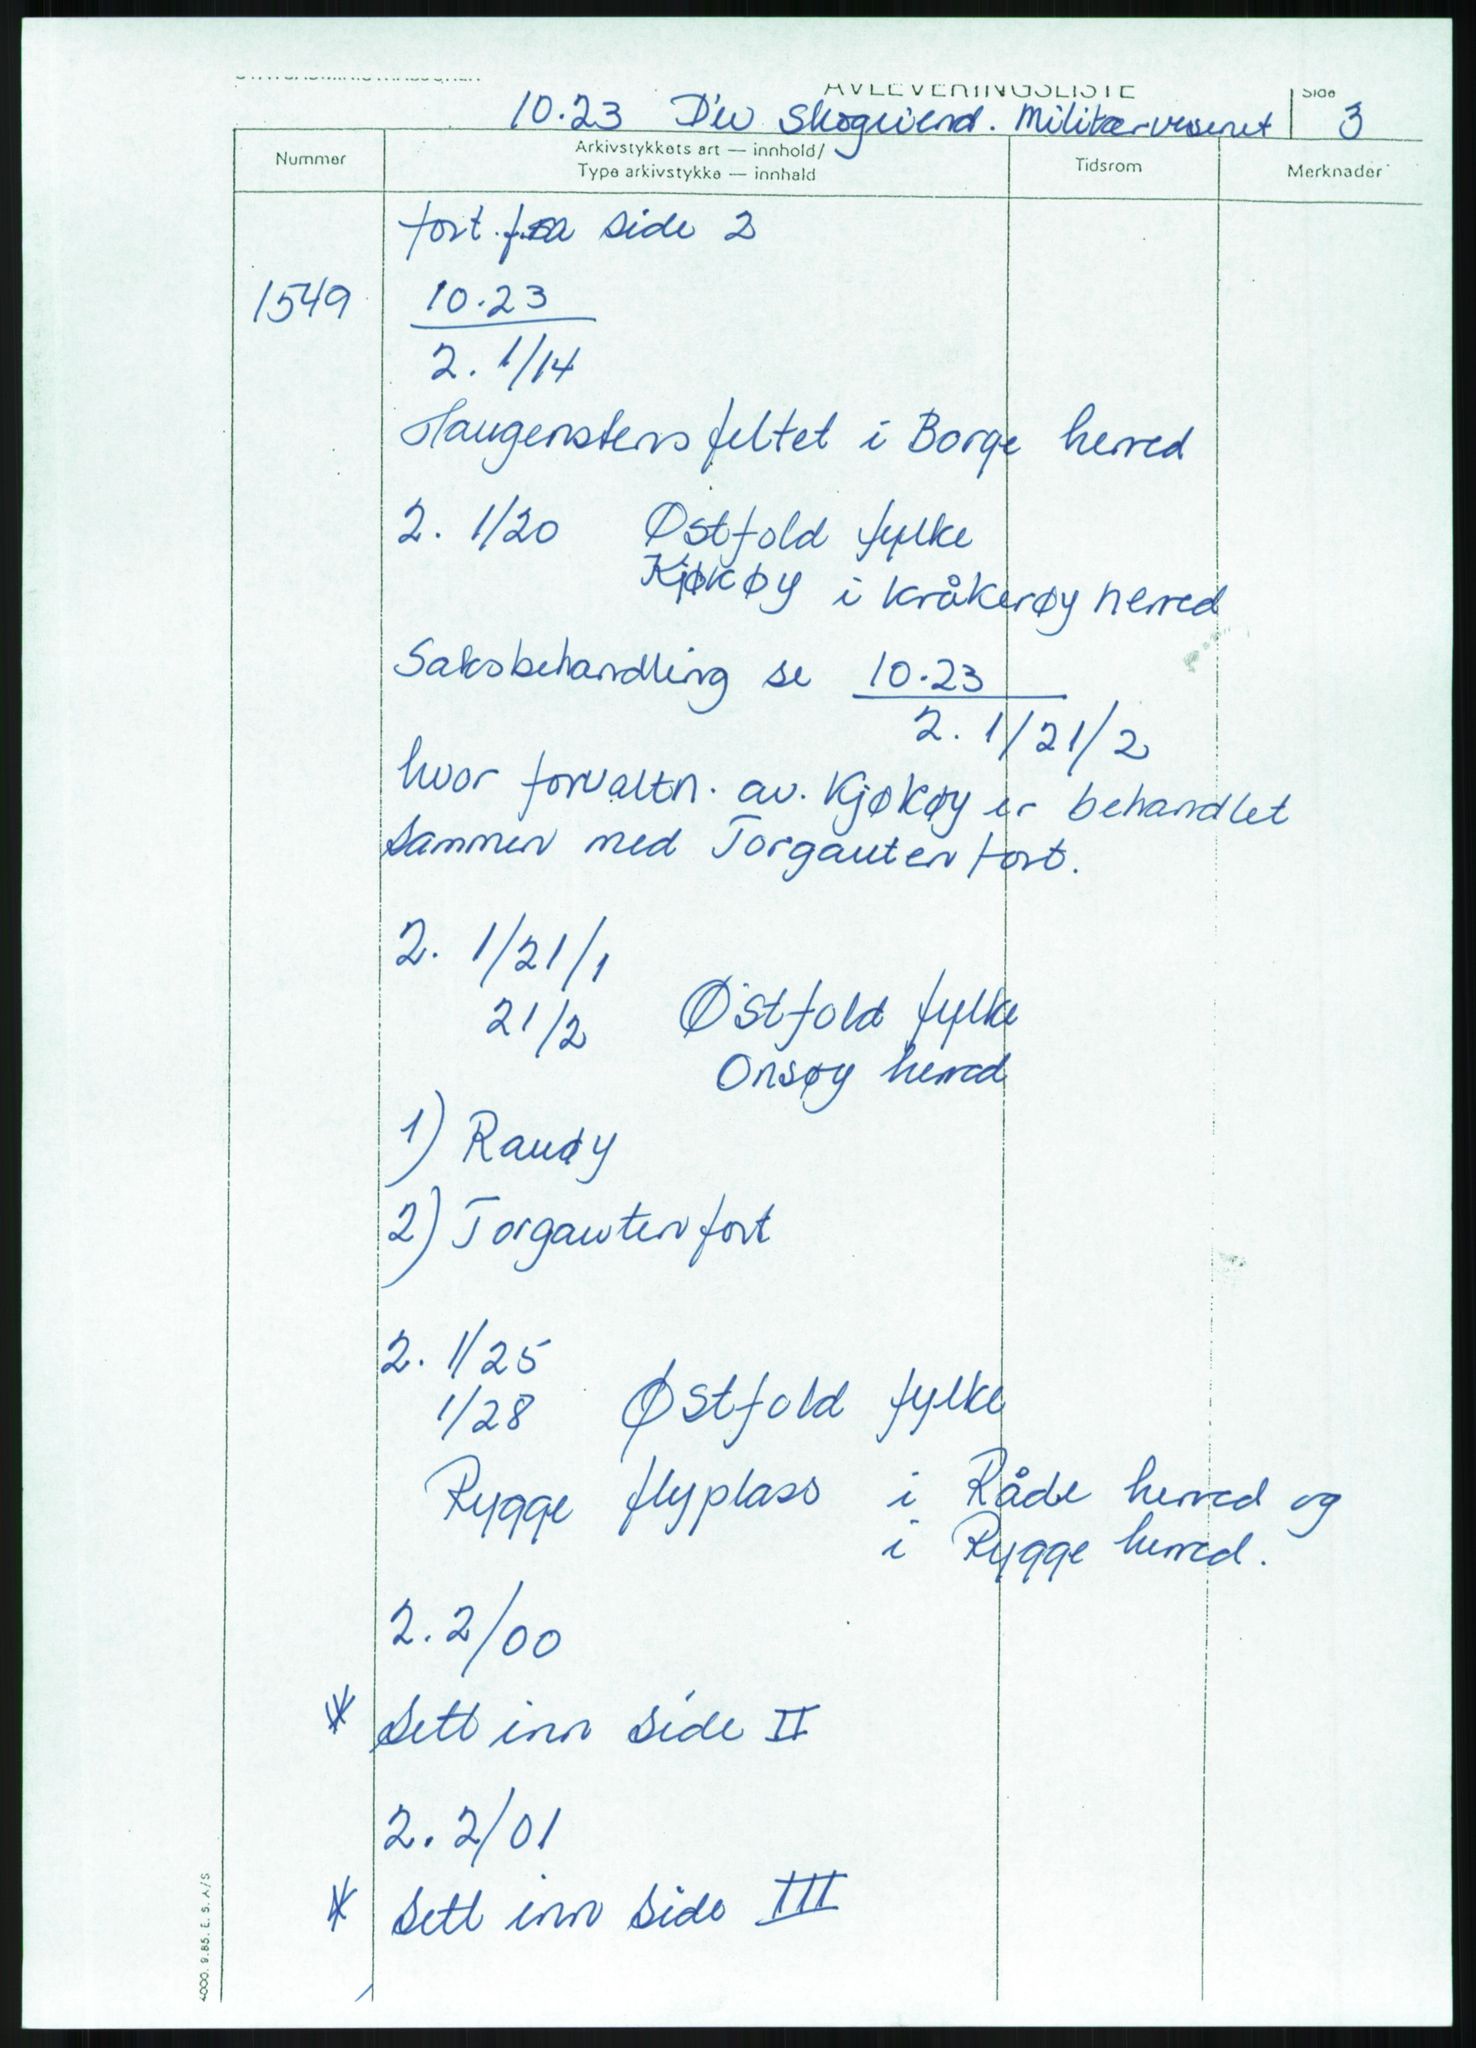 AVLEVERINGSLISTE
Side
10.23 Div skogeiend. Militærvesenet 3
Nummer
Arkivstykkets art — innhold/
Type arkivstykke — innhald
Tidsrom
Merknader
fort. fra side 2
1549 10.23
2. 1/14
Haugenstensfeltet i Borge herred
2. 1/20 Østfold fylke
Kjøkøy i Kråkerøy herred
Saksbehandling se 10.23
2. 1/21/2
hvor forvaltn. av. Kjøkøy er behandlet
sammen med Torgauten fort.
2. 1/21/1
21/2 Østfold fylke
Onsøy herred
1) Rauøy
2) Torgauten fort
2. 1/25
1/28 Østfold fylke
Rygge flyplass i Råde herred og
i Rygge herred.
2. 2/00
* Sett inn side II
2. 2/01
* Sett inn side III
4000. 9.85. E. S. A/S